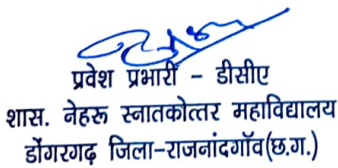 प्रवेश प्रभारी - डीसीए
शास. नेहरू स्नातकोत्तर महाविद्यालय
डोंगरगढ़ जिला-राजनांदगॉव(छ.ग.)